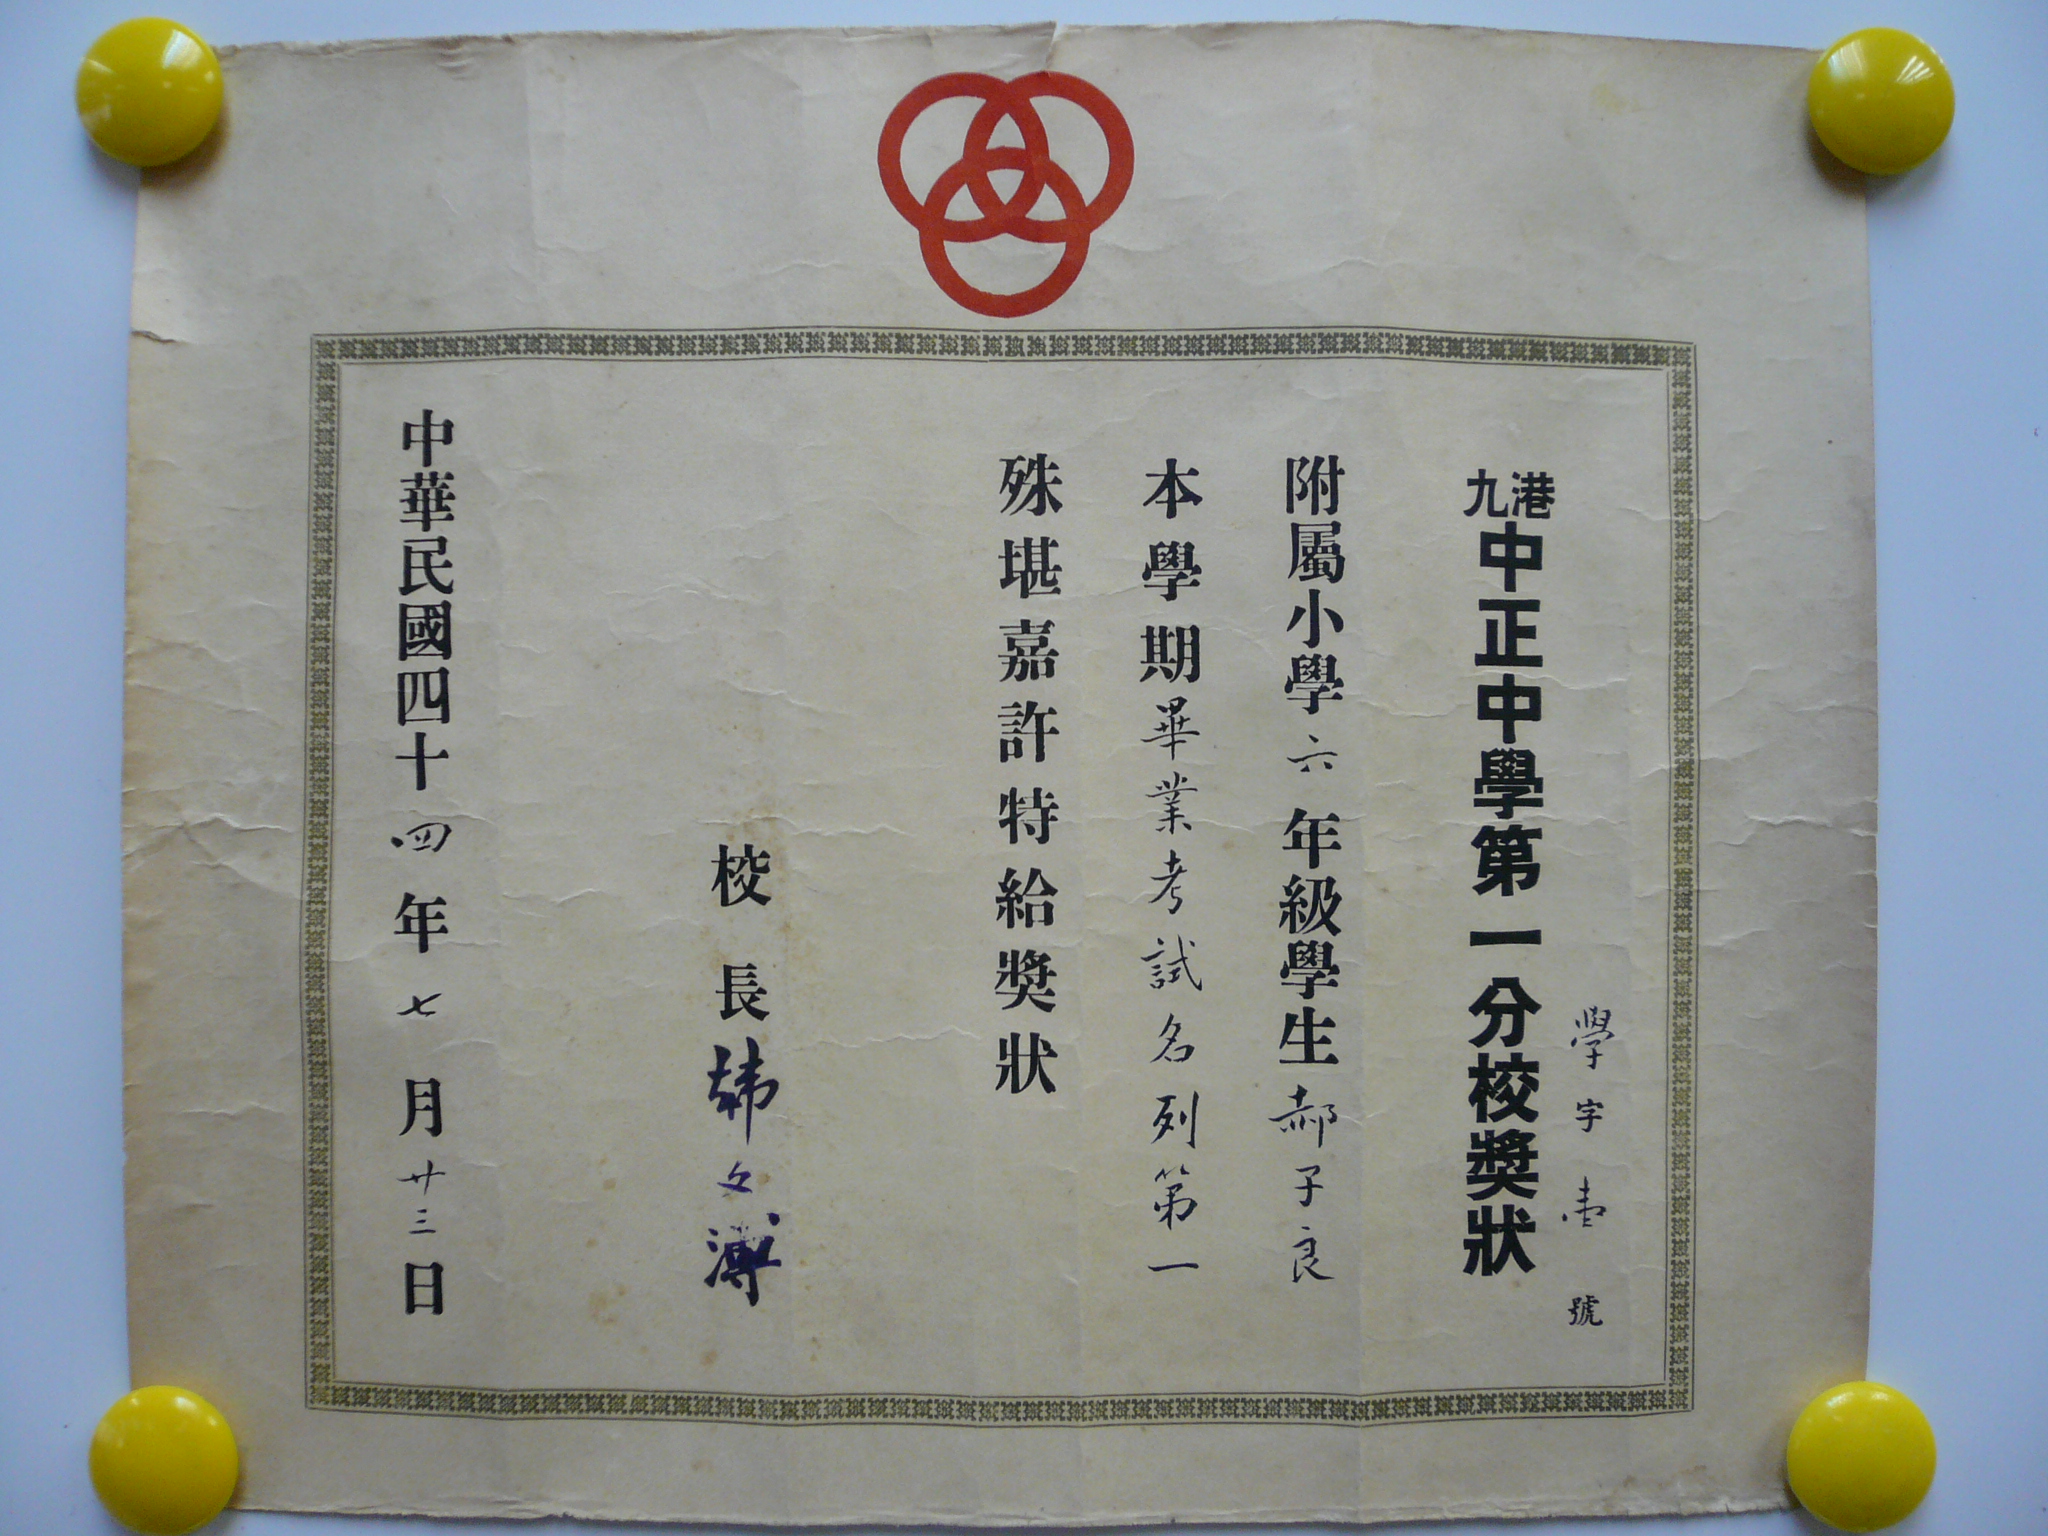 學字壹號
港九中正中學第一分校獎狀
附屬小學六年級學生郝子良
本學期畢業考試名列第一
殊堪嘉許特給獎狀
校長韓文溥
中華民國四十四年七月廿三日